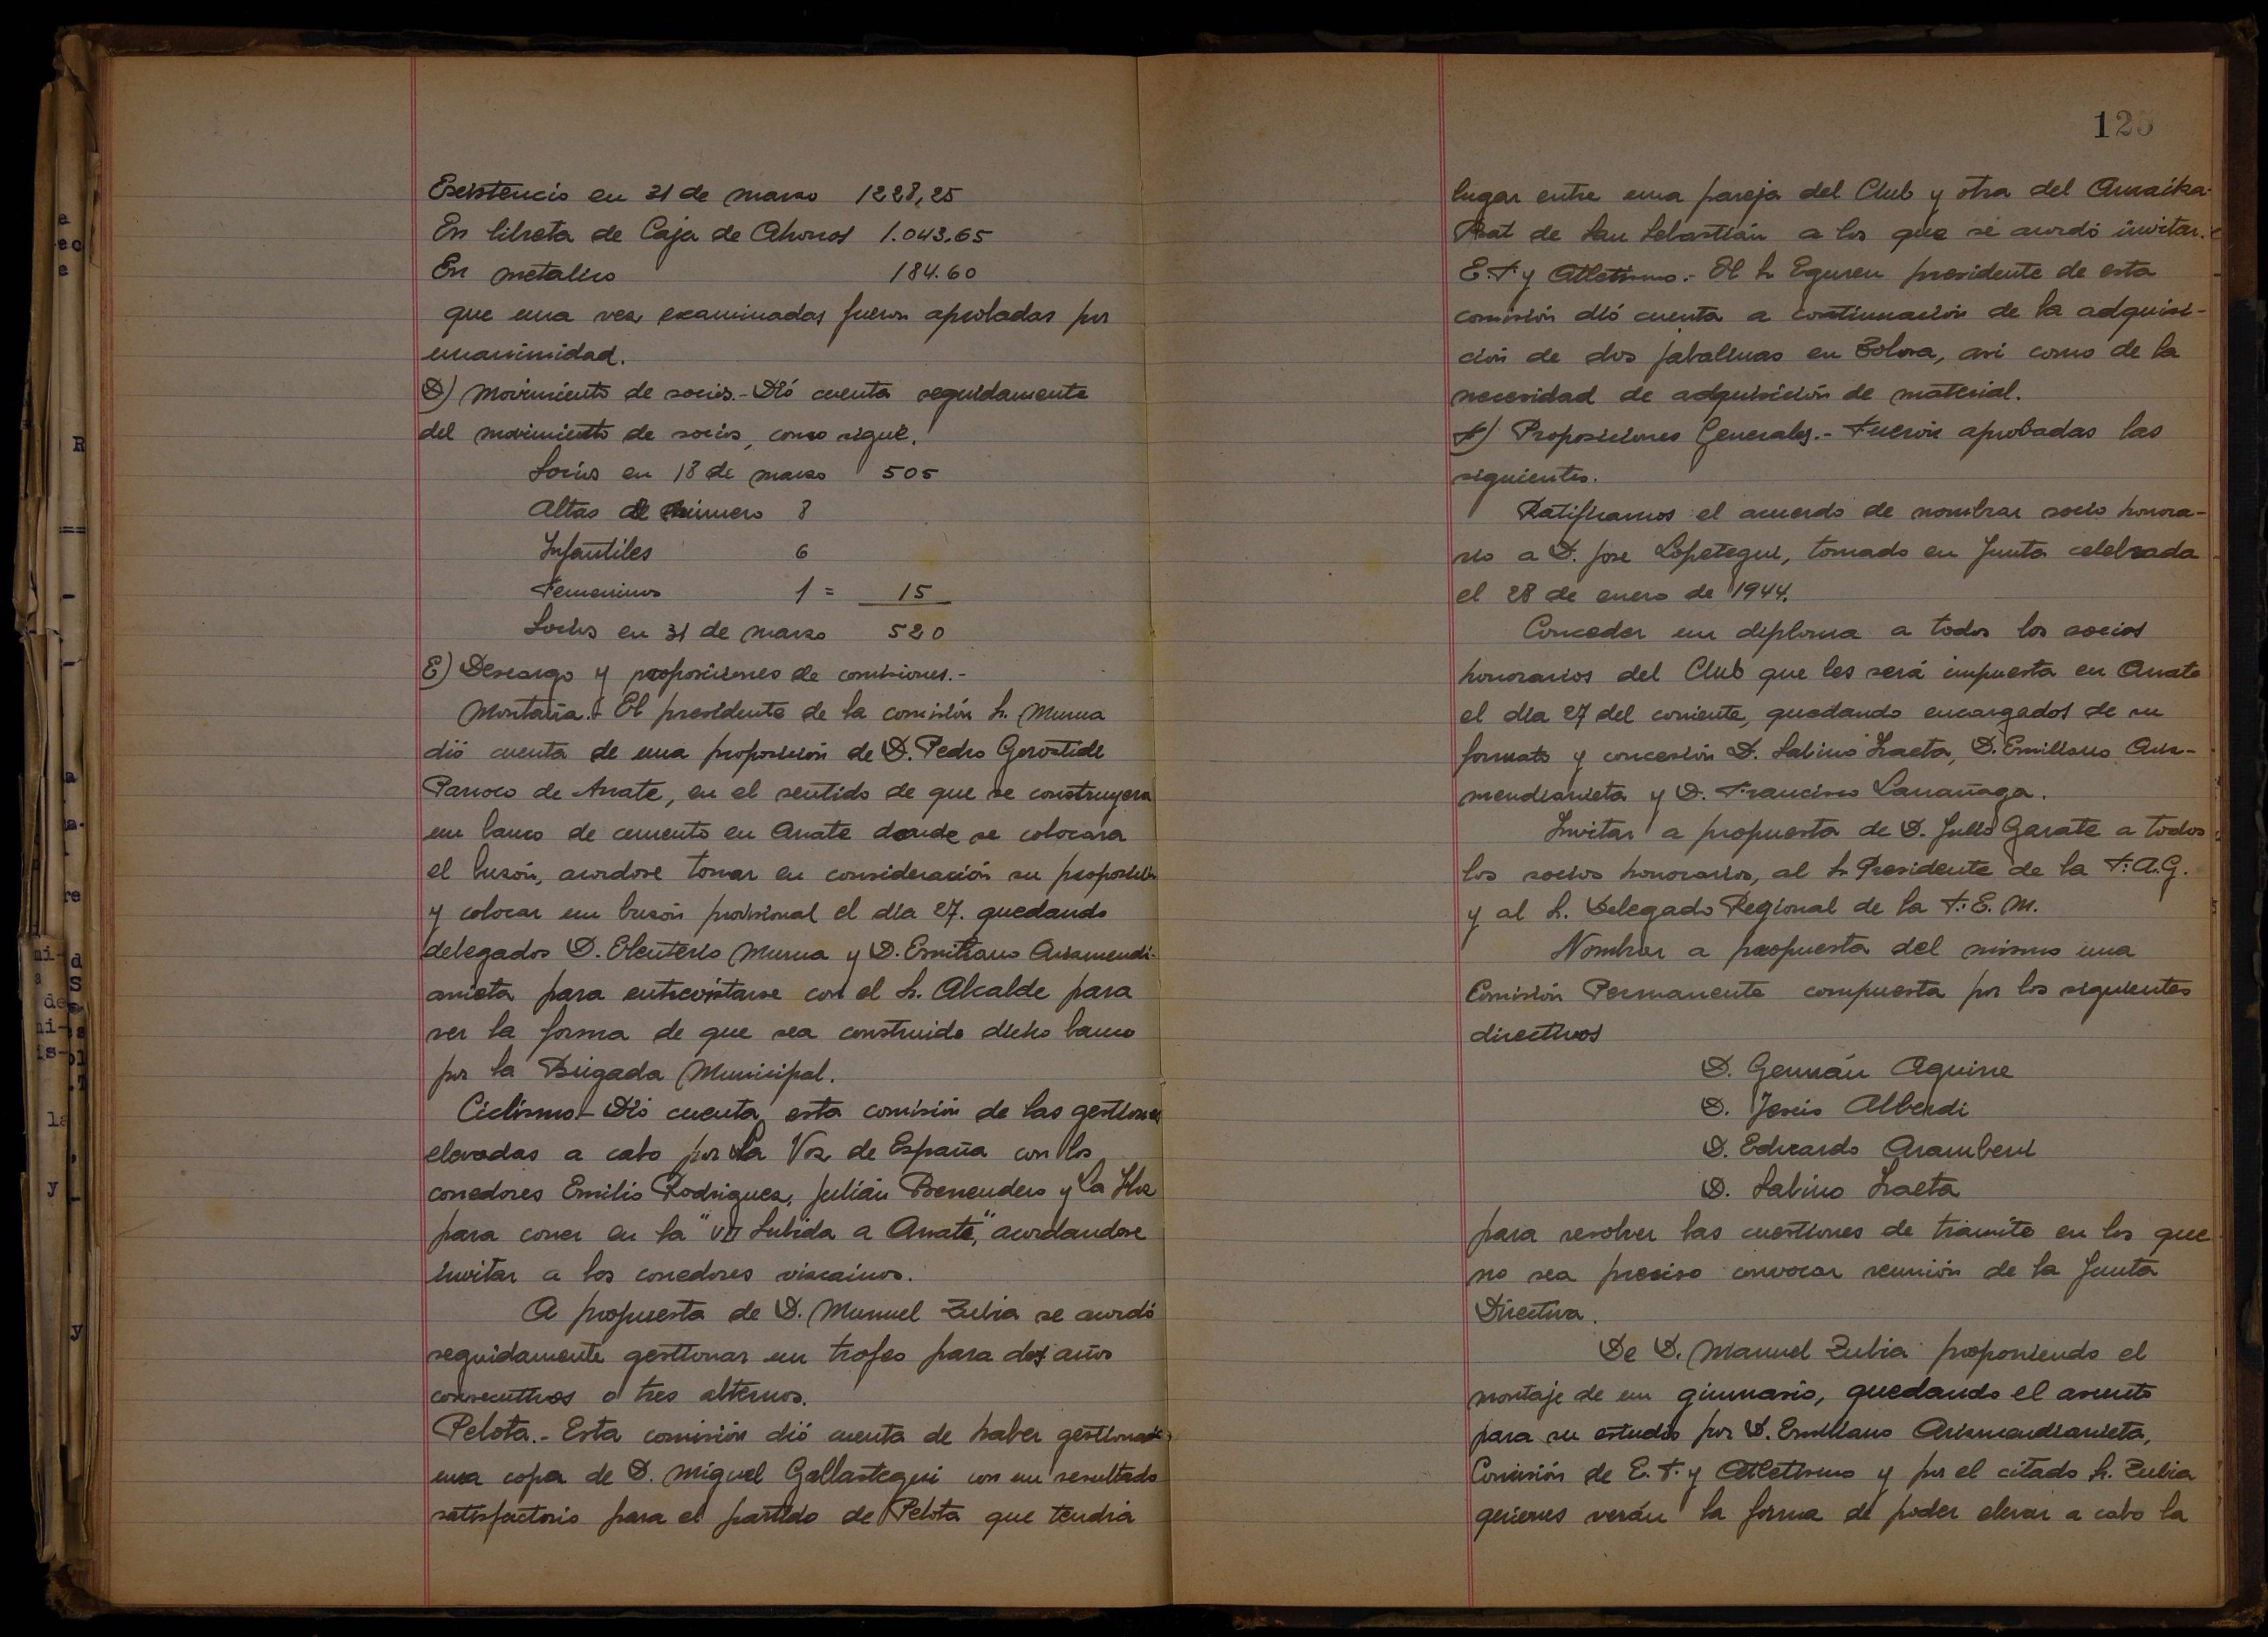 Existencia en 31 de marzo 1228,25
En libreta de Caja de Ahorros 1.043.65
En metalico 184.60
que una vez examinadas fueron aprobadas por
unanimidad.
D) Movimiento de socios.- Dió cuenta seguidamente
del movimiento de socios, como sigue.
Socios en 18 de marzo 505
Altas de número 8
Infantiles 6
Femeninos 1 = 15
Socios en 31 de marzo 520
E) Descargo y proposiciones de comisiones.-
Montaña.- El presidente de la comisión Sr. Murua
dió cuenta de una proposición de D. Pedro Gorostidi
Parroco de Arrate, en el sentido de que se construyera
un banco de cemento en Arrate donde se colocara
el buzón, acordose tomar en consideración su proposición
y colocar un buzón provisional el dia 27. quedando
delegados D. Eleuterio Murua y D. Emiliano Arizmendi-
arrieta para entrevistarse con el Sr. Alcalde para
ver la forma de que sea construido dicho banco
por la Brigada Municipal.
Ciclismo.- Dió cuenta esta comisión de las gestiones
elevadas a cabo por La Voz de España con los
corredores Emilio Rodriguez, Julián Berrendero y La
para correr en la "VII Subida a Arrate", acordandose
invitar a los corredores vizcainos.
A propuesta de D. Manuel Zubia se acordó
seguidamente gestionar un trofeo para dos años
consecutivos o tres alternos.
Pelota.- Esta comisión dió cuenta de haber gestionado
una copa de D. Miguel Gallastegui con un resultado
satisfactorio para el partido de Pelota que tendria
125
lugar entre una pareja del Club y otra del Amaika-
Bat de San Sebastián a los que se acordó invitar.
E.F. y Atletismo.- El Sr Eguren presidente de esta
comisión dió cuenta a continuación de la adquisi-
ción de dos jabalinas en Tolosa, asi como de la
necesidad de adquisición de material.
F) Proposiciones Generales.- Fueron aprobadas las
siguientes.
Ratificamos el acuerdo de nombrar socio honora-
rio a D. Jose Lopetegui, tomado en Junta celebrada
el 28 de enero de 1944.
Conceder un diploma a todos los socios
honorarios del Club que les será impuesta en Arrate
el dia 27 del corriente, quedando encargados de su
formato y concesión D. Sabino Iraeta, D. Emiliano Ariz-
mendiarrieta y D. Francisco Larrañaga.
Invitar a propuesta de D. Julio Garate a todos
los socios honorarios, al Sr Presidente de la F.A.G.
y al Sr. Delegado Regional de la F.E.M.
Nombrar a propuesta del mismo una
Comisión Permanente compuesta por los siguientes
directivos
D. Germán Aguirre
D. Jesús Alberdi
D. Eduardo Aramberri
D. Sabino Iraeta
para resolver las cuestiones de tramite en los que
no sea preciso convocar reunión de la Junta
Directiva.
De D. Manuel Zubia proponiendo el
montaje de un gimnasio, quedando el asunto
para su estudio por D. Emiliano Arizmendiarrieta,
Comisión de E.F. y Atletismo y por el citado Sr. Zubia
quienes verán la forma de poder elevar a cabo la